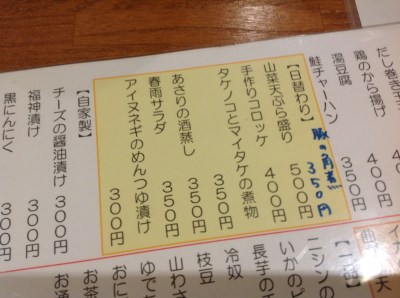 だし巻き玉
鶏のから揚げ 400
湯豆腐 400円
鮭チャーハン 350円
【日替わり】 豚の角煮 350円
山菜天ぷら盛り 500円
手作りコロッケ 400円
タケノコとマイタケの煮物 350円
あさりの酒蒸し 350円
春雨サラダ 300円
アイヌネギのめんつゆ漬け 300円
【自家製】
チーズの醤油漬け 300円
福神漬け 300円
黒にんにく 300円
イカ
曲 天
【一品
ニシンの
いかのピ
長芋のエ
冷奴
枝豆
山わさ
ゆで
おに
お茶
お通